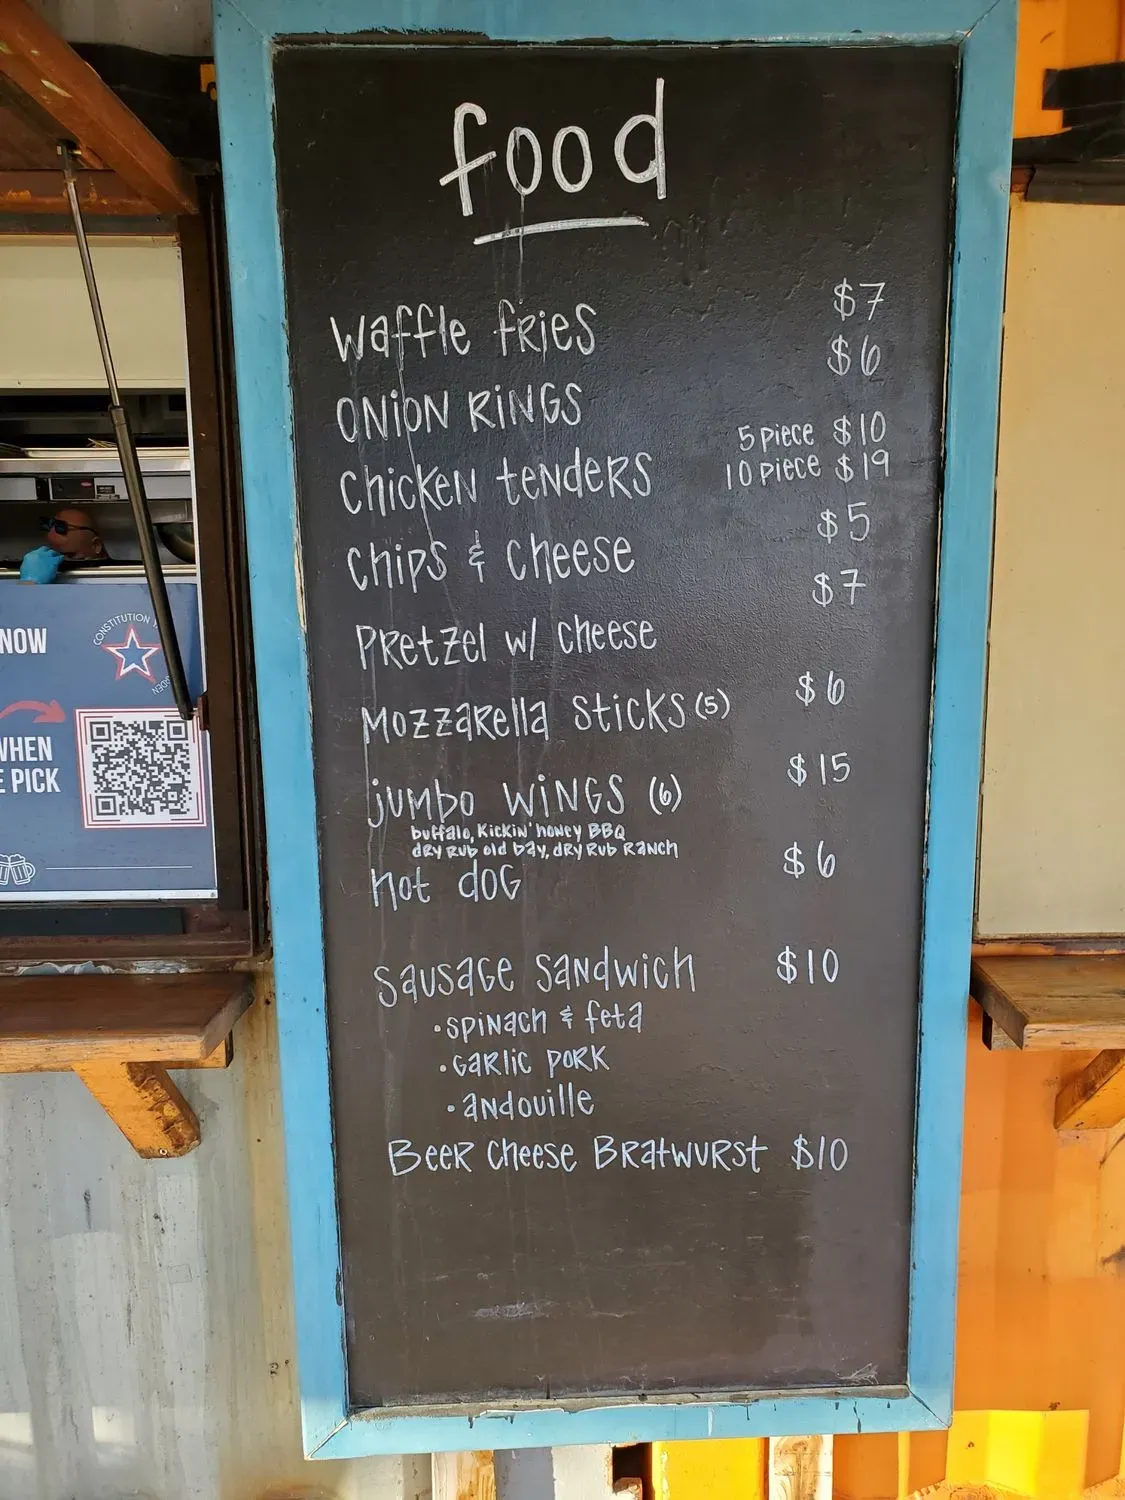 food
Waffle fries $7
Onion Rings $6
Chicken tenders 5 piece $10
10 piece $19
Chips & Cheese $5
Pretzel w/ Cheese $7
Mozzarella Sticks (5) $6
jumbo wings (6) $15
buffalo, Kickin' honey BBQ
dry rub old bay, dry rub ranch
hot dog $6
Sausage Sandwich $10
•Spinach & feta
•Garlic pork
•andouille
Beer Cheese Bratwurst $10
NOW
CONSTITUTION
WHEN
PICK